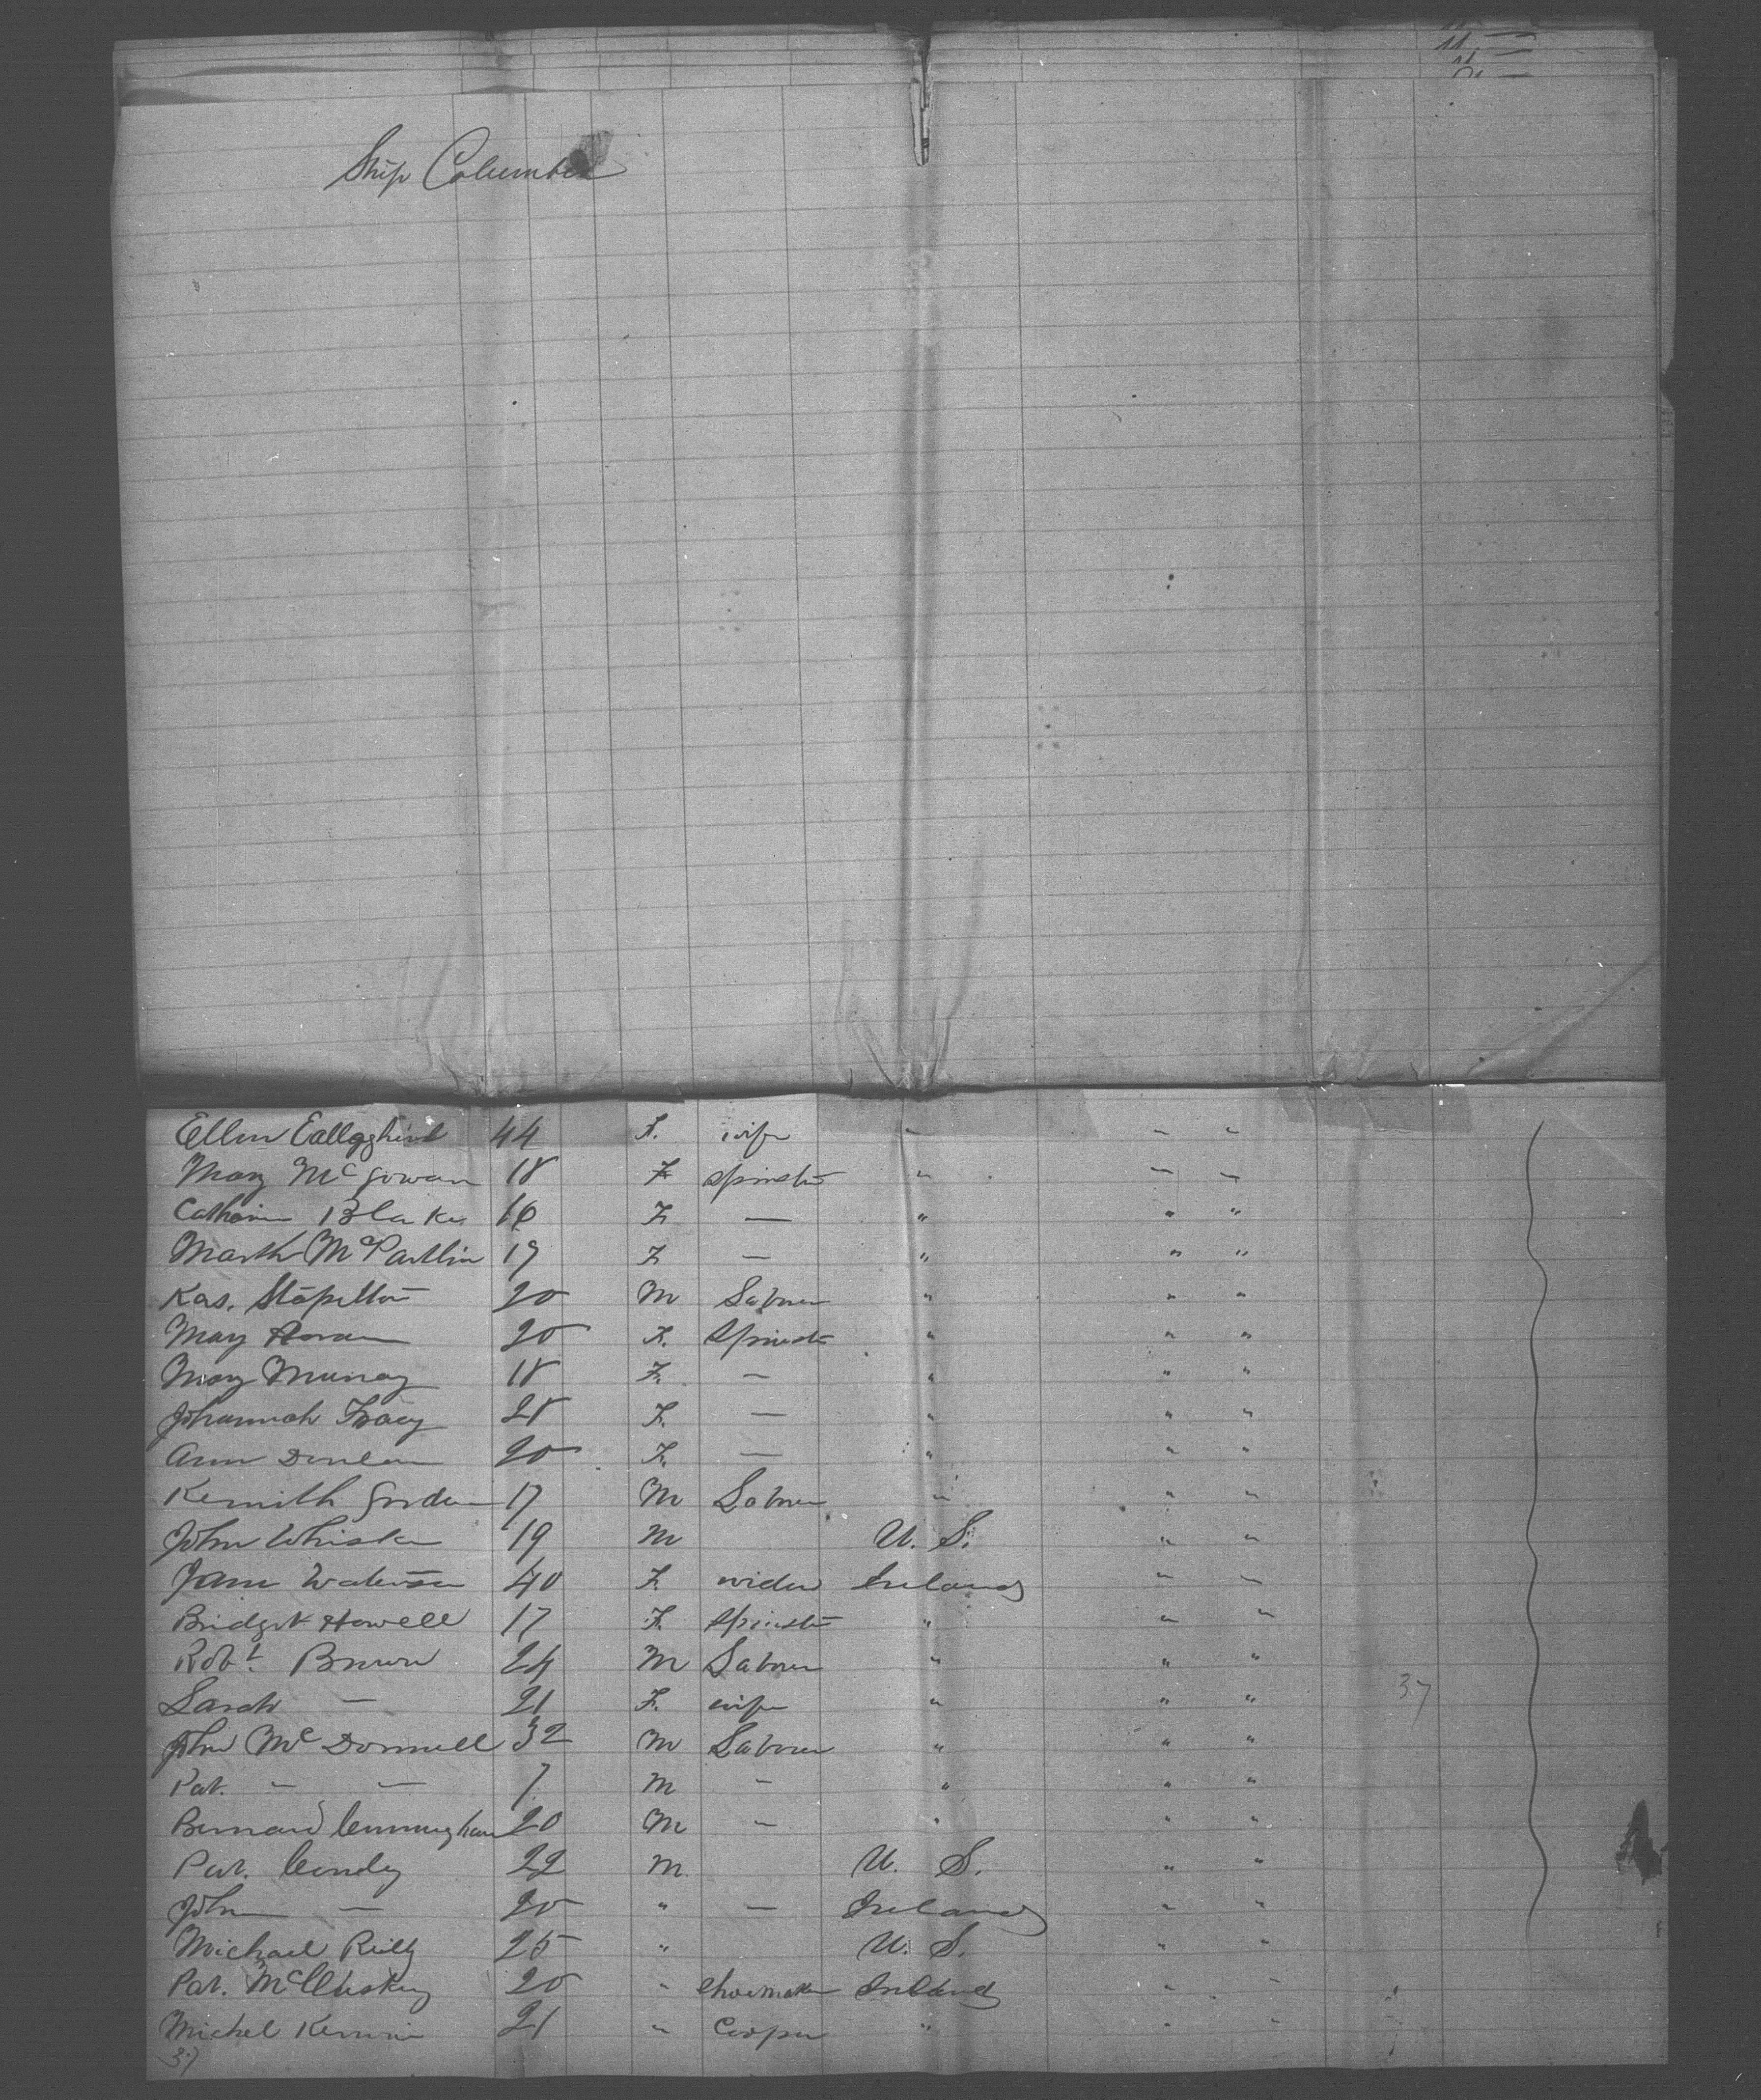 Ship Columbia
Ellen 44 F. wife " " "
Mary McGowan 18 F spinster " " "
Catharin Blake 16 F — " " "
Marth McPartlin 19 F — " " "
Kas. Stapelton 20 M Laborer " " "
Mary Horan 20 F. Spinster " " "
Mary Murray 18 F. — " " "
Johannah Tracy 28 F. — " " "
Ann Donlan 20 F. — " " "
Kennith Gordon 17 M Laborer " " "
John Whisker 19 M U. S. " "
Jane Waterson 40 F. widow Ireland " "
Bridget Howell 17 F. Spinster " " "
Robt. Brown 24 M Laborer " " "
Sarah — 21 F. wife " " " 37
John McDonnell 32 M Laborer " " "
Pat. — — 7 M — " " "
Bernard Cunningham 20 M — " " "
Pat. 22 M. U. S. " "
John — 20 " — Ireland " "
Michael Reilly 25 " U. S. " "
Pat. McCluskey 20 " Shoemaker Ireland " "
Michel Kerwin 21 " Cooper " " "
37